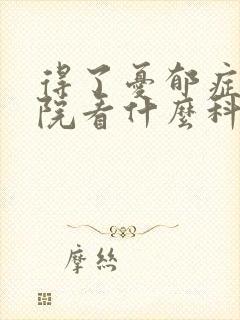 得了憂郁症
院看什麼科
摩絲